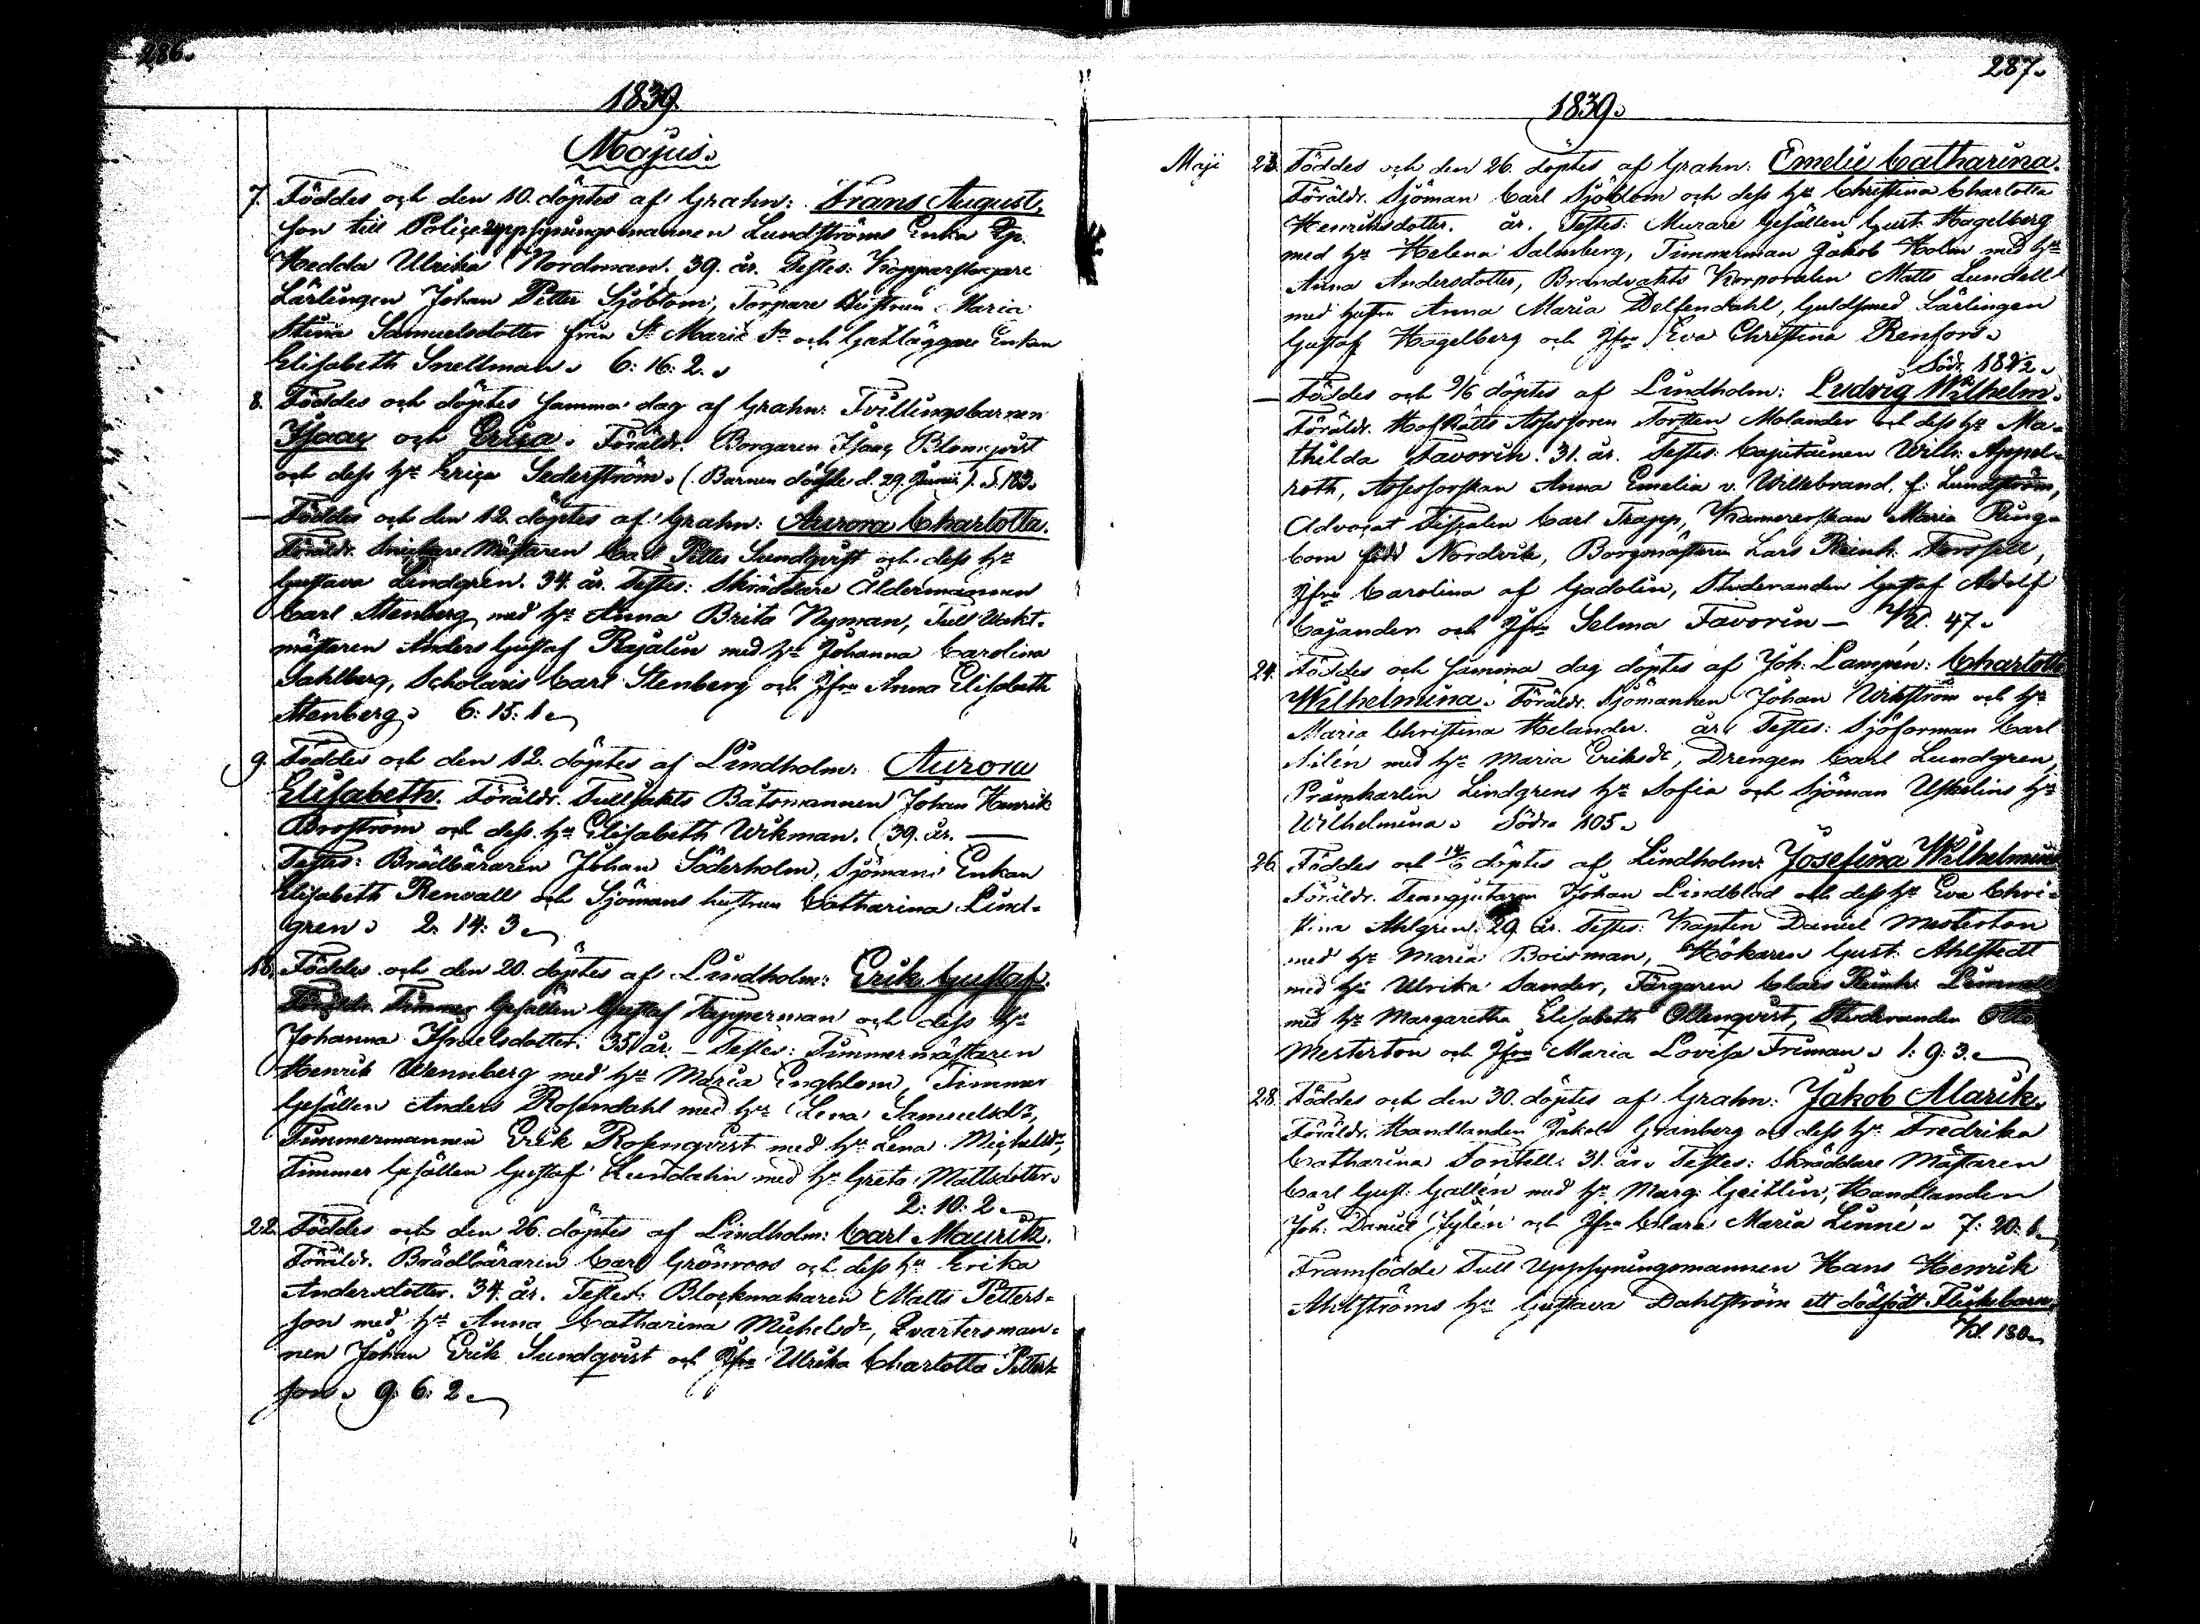 286.
1839.
Majus.
7. Föddes och den 10. döptes af Grahn: Frans August,
son till Police uppsyningsmannen Lundströms Enka
Hedda Ulrika Nordman. 39. år. Testes: Kopparslagare
Lärlingen Johan Petter Sjöblom, Torpare Hustrun Maria
Stina Samuelsdotter från St Mariæ Sn och Gatläggare Enkan
Elisabeth Snellman. 6: 16: 2.
8. Föddes och döptes samma dag af Grahn: Tvillingsbarnen
Isaac och Erica. Föräldr. Borgaren Isaac Blomqvist
och dess hu Erica Sederström. (Barnen dödde d. 29. Junii). S. 183.
— Föddes och den 12. döptes af Grahn: Aurora Charlotta.
Föräldr. Snickare Mästaren Carl Petter Sundqvist och dess hu
Gustava Lindgren. 34. år. Testes: Skräddare Åldermannen
Carl Stenberg med hu Anna Brita Nyman, Tull Vakt-
mästaren Anders Gustaf Rajalin med hu Johanna Carolina
Sahlberg, Scholaris Carl Stenberg och Jfru Anna Elisabeth
Stenberg. 6: 15: 1.
9. Föddes och den 12. döptes af Lindholm: Aurora
Elisabeth. Föräldr. Tulljakts Båtsmannen Johan Henrik
Broström och dess hu Elisabeth Wikman. 39. år. —
Testes: Brädbäraren Johan Söderholm, Sjömans Enkan
Elisabeth Renvall och Sjömans hustrun Catharina Lind-
gren. 2. 14: 3.
Föddes och den 20. döptes af Lindholm: Erik Gustaf.
Föräldr. Timmer Gesällen Gustaf Tapperman och dess hu
Johanna Israelsdotter. 35 år. — Testes: Timmermästaren
Henrik Wennberg med hu Maria Engblom, Timmer
Gesällen Anders Rosendahl med hu Lena Samuelsdr,
Timmermannen Erik Rosenqvist med hu Lena Michelsdr,
Timmer Gesällen Gustaf Lundahn med hu Greta Mattsdotter.
2: 10: 2.
22. Föddes och den 26. döptes af Lindholm: Carl Maurik.
Föräldr. Brädbäraren Carl Grönroos och dess hu Erika
Andersdotter. 34. år. Testes: Blockmakaren Matts Petters-
son med hu Anna Catharina Michelsdr, Qvartersman-
nen Johan Erik Sundqvist och Jfru Ulrika Charlotta Petters-
son. 9: 6: 2.
287.
1839.
Maji 23. Föddes och den 26. döptes af Grahn: Emelie Catharina.
Föräldr. Sjöman Carl Sjöblom och dess hu Christina Charlotta
Henriksdotter. år. Testes: Murare Gesällen Gust. Hagelberg
med hu Helena Salmberg, Timmerman Jakob Holm med hu
Anna Andersdotter, Brandvakts Korporalen Matts Lundell
med hustru Anna Maria Delfendahl, Guldsmed Lärlingen
Gustaf Hagelberg och Jfru Eva Christina Renfors.
Söd. 181½.
— Föddes och 9/6 döptes af Lindholm: Ludvig Wilhelm.
Föräldr. Hof Rätts Assessoren Torsten Molander och dess hu Ma-
thilda Favorin. 31. år. Testes: Capitainen Wilh. Appel-
roth, Assessorskan Anna Emelia v. Willebrand, f. Lundström,
Advocat Fiskalen Carl Trapp, Kamererskan Maria Ring-
bom född Nordvik, Borgmästaren Lars Reinh.
Jfru Carolina af Gadolin, Studeranden Gustaf Adolf
Cajander och Jfru Selma Favorin — 47.
24. Föddes och samma dag döptes af Joh. Lampén: Charlotta
Wilhelmina. Föräldr. Sjömannen Johan Wikström och hu
Maria Christina Helander. år. Testes: Sjöforman Carl
Nilén med hu Maria Eriksdr, Drengen Carl Lundgren,
Pråmkarlen Lindgrens hu Sofia och Sjöman Uskelins hu
Wilhelmina. Södra 105.
26. Föddes och 14/6 döptes af Lindholm: Josefina Wilhelmina
Föräldr. Tenngjutaren Johan Lindblad och dess hu Eva Chri-
stina Ahlgren. 29. år. Testes: Kapten Daniel Mesterton
med hu Maria Boisman, Hökaren Gust. Ahlstedt
med hu Ulrika Sander, Färgaren Claes Reinh.
med hu Margaretha Elisabeth Ollenqvist, Studeranden Otto
Mesterton och Jfru Maria Lovisa Friman. 1: 9: 3.
28. Föddes och den 30. döptes af Grahn: Jakob Alarik.
Föräldr. Handlanden Jakob Granberg och dess hu Fredrika
Catharina Fontell. 31. år. Testes: Skräddare Mästaren
Carl Gust. Gallén med hu Marg. Geitlin, Handlanden
Joh. Daniel Jylén och Jfru Clara Maria Linné. 7: 20: 6.
Framfödde Tull Uppsyningsmannen Hans Henrik
Ahlströms hu Gustava Dahlström ett dödfödt Flickebarn.
Kl. 180.